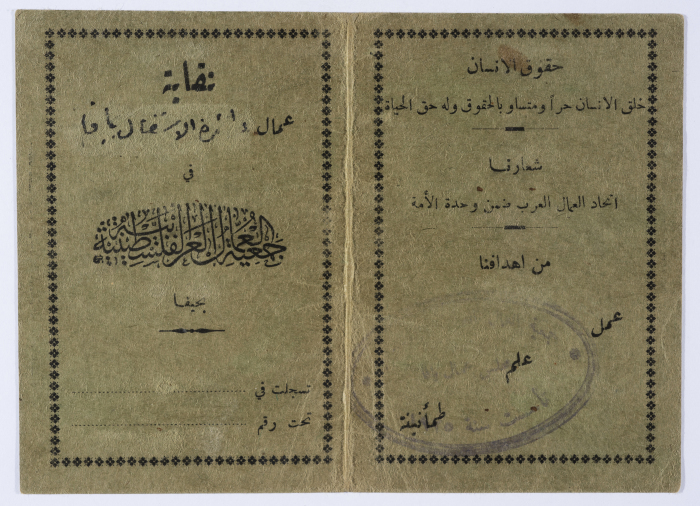 حقوق الانسان
خلق الانسان حراً ومتساو بالحقوق وله حق الحياة
شعارنا
اتحاد العمال العرب ضمن وحدة الأمة
من اهدافنا
عمل
علم
طمأنينة
نقابة
عمال دائرة الاشغال بيافا
في
جمعية العمال العربية الفلسطينية
بحيفا
تسجلت في
تحت رقم